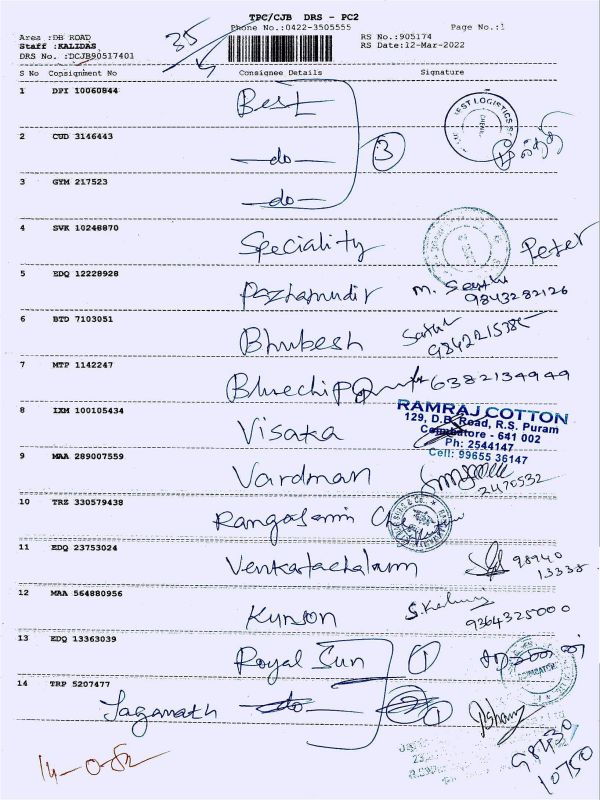 TPC/CJB DRS - PC2
Phone No.:0422-3505555 Page No.:1
Area :DB ROAD RS No.:905174
Staff :KALIDAS, RS Date:12-Mar-2022
DRS No. :DCJB90517401
35
S No Consignment No Consignee Details Signature
1 DPI 10060844 Best
2 CUD 3146443 -do- 3
3 GYM 217523 -do-
4 SVK 10248870 Speciality Peter
5 EDQ 12228928 Pazhamudir M. 9843282126
6 BTD 7103051 Bhubesh
7 MTP 1142247 Bluechip 6382134949
8 IXM 100105434 Visaka
RAMRAJ COTTON
129, D.B. Road, R.S. Puram
Coimbatore - 641 002
Ph: 2544147
Cell: 99655 36147
9 MAA 289007559 Vardman 2470532
10 TRZ 330579438 Rangasami
11 EDQ 23753024 Venkatachalam 98940
13338
12 MAA 564880956 Kynson 9364325000
13 EDQ 13363039 Royal Sun 1
14 TRP 5207477 Jaganath -do- 1
98430
10750
14-0-82